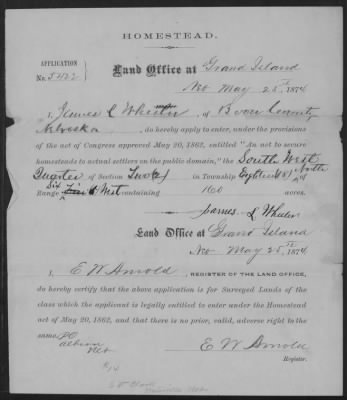 HOMESTEAD.
APPLICATION
No. 5422
Land Office at Grand Island
Neb May 25th 1874
I, James L Wheeler of Boone County
Nebraska, do hereby apply to enter, under the provisions
of the act of Congress approved May 20, 1862, entitled "An act to secure
homesteads to actual settlers on the public domain," the South West
Quarter of Section Two (2) in Township Eighteen (18) North of
Range Six 6 West containing 160 acres.
James L Wheeler
Land Office at Grand Island
Neb May 25th 1874
I, E W Arnold, REGISTER OF THE LAND OFFICE,
do hereby certify that the above application is for Surveyed Lands of the
class which the applicant is legally entitled to enter under the Homestead
act of May 20, 1862, and that there is no prior, valid, adverse right to the
same.
PO
Albion
Neb
E W Arnold
Register.